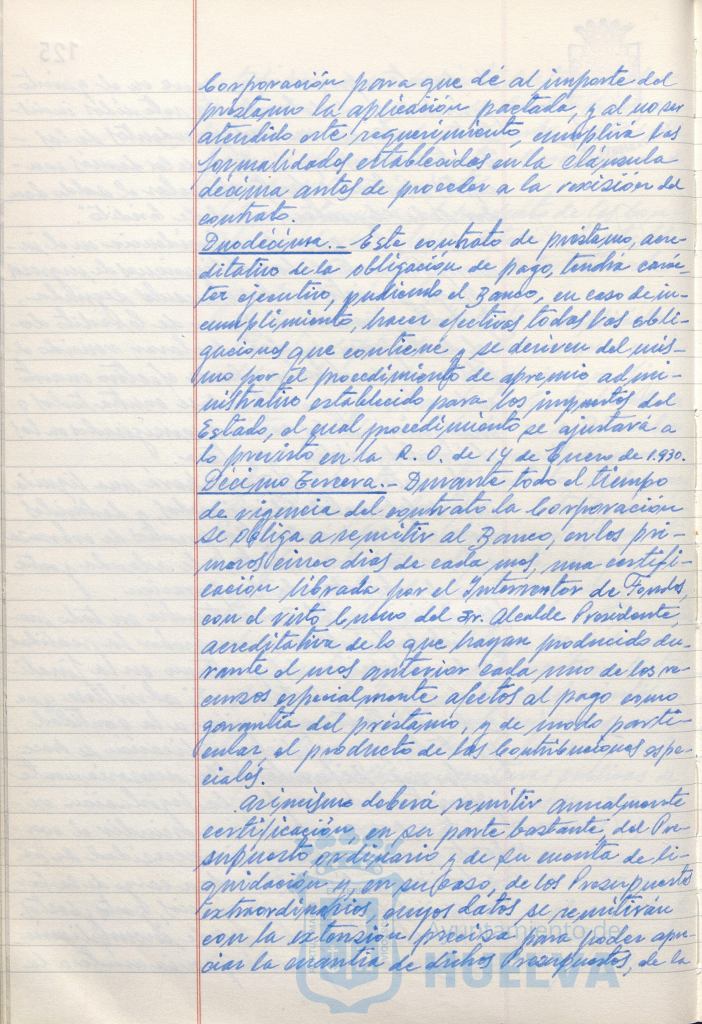 Corporación para que dé al importe del
préstamo la aplicación pactada, y al no ser
atendido este requerimiento, cumplirá las
formalidades establecidas en la cláusula
décima antes de proceder a la rescisión del
contrato.
Duodécima.- Este contrato de préstamo, acre-
ditativo de la obligación de pago, tendrá carác-
ter ejecutivo, pudiendo el Banco, en caso de in-
cumplimiento, hacer efectivas todas las obli-
gaciones que contiene y se deriven del mis-
mo por el procedimiento de apremio admi-
nistrativo establecido para los impuestos del
Estado, el qual procedimiento se ajustará a
lo previsto en la R. O. de 14 de Enero de 1.930.
Décimo Tercera.- Durante todo el tiempo
de vigencia del contrato la Corporación
se obliga a remitir al Banco, en los pri-
meros cinco dias de cada mes, una certifi-
cación librada por el Interventor de Fondos,
con el visto bueno del Sr. Alcalde Presidente,
acreditativa de lo que hayan producido du-
rante el mes anterior cada uno de los re-
cursos especialmente afectos al pago como
garantía del préstamo, y de modo parti-
cular, el producto de las Contribuciones espe-
ciales.
Asimismo deberá remitir anualmente
certificación, en su parte bastante, del Pre-
supuesto ordinario y de su cuenta de li-
quidación y, en su caso, de los Presupuestos
extraordinarios, cuyos datos se remitirán
con la extensión precisa para poder apre-
ciar la cuantía de dichos Presupuestos, de la
Ayuntamiento de
HUELVA
125